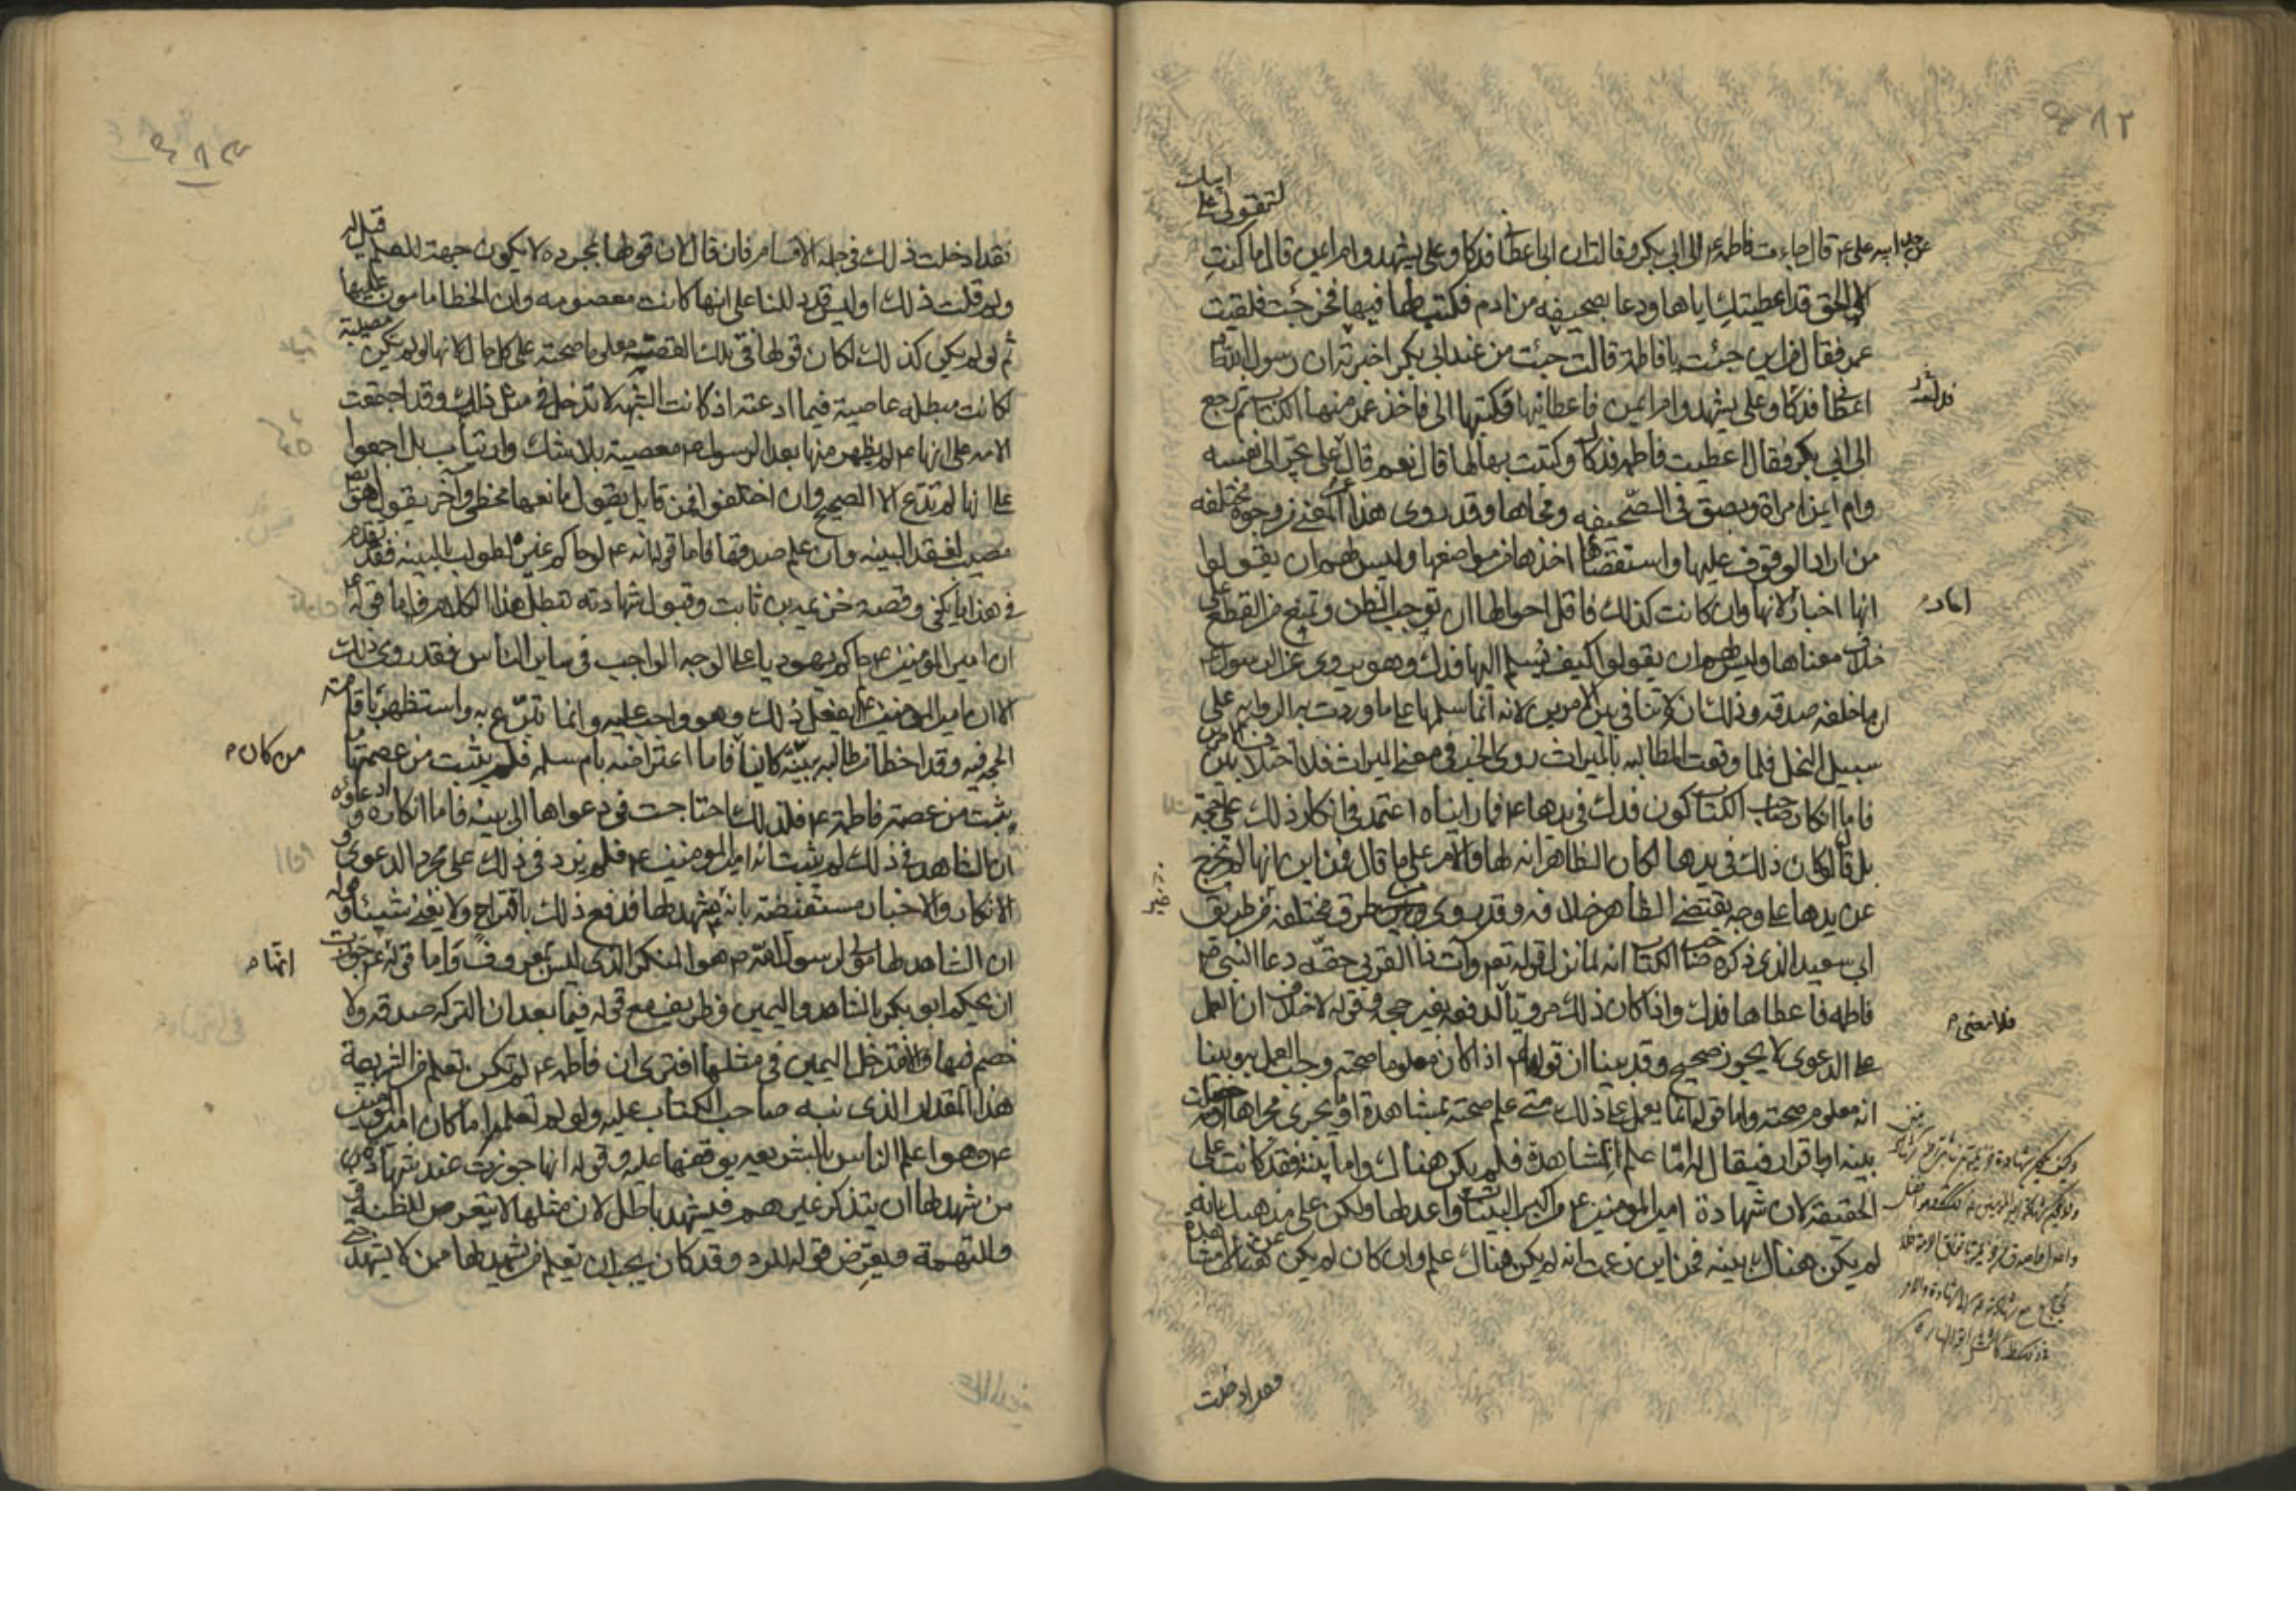 لتقولي على
عن جده ابيه علي ع قال جاءت فاطمة ع الى ابي بكر وقالت ان ابي اعطاني فدكا وعلي يشهد وام ايمن قال ما كنت
الا الحق قد اعطيتك اياها ودعا بصحيفة من ادم فكتب لها فيها فخرجت فلقيت
عمر فقال من اين جئت يا فاطمة قالت جئت من عند ابي بكر اخبرته ان رسول الله ص
اعطاني فدكا وعلي يشهد وام ايمن فاعطانيها وكتبها الي فاخذ عمر منها الكتاب ثم رجع
الى ابي بكر فقال اعطيت فاطمة فدكا وكتبت بها لها قال نعم قال علي يجر الى نفسه
وام ايمن امراة وبصق في الصحيفه ومحاها وقد روى هذا المعنى من وجوه مختلفه
من اراد الوقوف عليها واستقصاها اخذها من مواضعها وليس لهم ان يقولوا
انها اخبار احاد لانها وان كانت كذلك فاقل احوالها ان توجب الظن وتمنع من القطع على
خلاف معناها وليس لهم ان يقولوا كيف يسلم اليها فدك وهو يروي عن الرسول
ان ما خلفه صدقه وذلك ان لا تنافي بين الامرين لانه انما سلمها على ما وردت به الروايه على
سبيل النحل فلما وقعت المطالبه بالميراث روى الخبر في معنى الميراث فلا اختلاف بين الامرين
فاما انكار صاحب الكتاب كون فدك في يدها ع فما رايناه اعتمد في انكار ذلك على حجة
بل قال لو كان ذلك في يدها لكان الظاهر انه لها والامر على ما قال فمن اين انها لم تخرج
عن يدها على وجه يقتضي الظاهر خلافه وقد روي من طرق مختلفة من طريق
ابي سعيد الذي ذكره صاحب الكتاب انه لما نزل قوله تعم وات ذا القربى حقه دعا النبي ص
فاطمه فاعطاها فدك واذا كان ذلك مرويا فلا معنى لدفعه بغير حجة وقوله لا خلاف ان العمل
على الدعوى لا يجوز صحيح وقد بينا ان قولها ع اذا كان معلوما صحته وجب العمل به وبينا
انه معلوم صحته واما قوله انما يعمل على ذلك متى علم صحته بمشاهدة او ما يجري مجراها او حصلت
بينه او اقرار فيقال له اما علم المشاهدة فلم يكن هناك واما بينة فقد كانت على
الحقيقة لان شهادة امير المومنين ع من اكبر البينات واعدلها ولكن على مذهبك انه
لم يكن هناك بينه فمن اين زعمت انه لم يكن هناك علم وان كان لم يكن هناك عن مشاهدة
فقد ادخلت
فقد ادخلت ذلك في جملة الاقسام فان قال لان قولها بمجرده لا يكون جهة للعلم قيل له
ولم قلت ذلك اوليس قد دللنا على انها كانت معصومه وان الخطا مامون عليها
ثم لو لم يكن كذلك لكان قولها في تلك القضية معلوما صحته على كل حال لانها لو لم تكن مصيبة
لكانت مبطله عاصية فيما ادعته اذ كانت الشبهه لا تدخل في مثل ذلك وقد اجمعت
الامه على انها ع لم يظهر منها بعد الرسول ع معصية بلا شك وارتياب بل اجمعوا
على انها لم تدع الا الصحيح وان اختلفوا فمن قايل يقول مانعها مخطئ وآخر يقول هو
مصيب لفقد البينه وان علم صدقها فاما قوله انه ع لو حاكم غيره لطولب بالبينه فقد تقدم
في هذا ما يكفي وقصة خزيمه بن ثابت وقبول شهادته تبطل هذا الكلام فاما قوله
ان امير المومنين ع حاكم يهوديا على الوجه الواجب في ساير الناس فقد روى ذلك
الا ان امير المومنين ع لم يفعل ذلك وهو واجب عليه وانما تبرع به واستظهر باقامة
الحجه فيه وقد اخطا من طالبه ببينة كائنا من كان فاما اعتراضه بام سلمه فلم يثبت من عصمتها ما
يثبت من عصمة فاطمة ع فلذلك احتاجت في دعواها الى بينه فاما انكاره و ادعاؤه
ان الشاهد في ذلك لم يثبت انه امير المومنين ع فلم يزد في ذلك على مجرد الدعوى و
الانكار والاخبار مستفيضة بانه ع شهد لها فدفع ذلك باقتراح لا يغني شيئا وقوله
ان الشاهد لها مولى لرسول الله ص هو المنكر الذي ليس بمعروف واما قوله انها جوزت
ان يحكم ابو بكر بالشاهد واليمين فطريف مع قوله فيما بعد ان التركه صدقه ولا
خصم فيها فلا تدخل اليمين في مثلها افترى ان فاطمه ع لم تكن تعلم من الشريعة
هذا المقدار الذي نبه صاحب الكتاب عليه ولو لم تعلمه ما كان امير المومنين
ع وهو اعلم الناس بالشريعه يوقفها عليه وقوله انها جوزت عند شهادة
من شهد لها ان يتذكر غيرهم فيشهد باطل لان مثلها لا يتعرض للظنة
والتهمة ويعرض قوله للرد وقد كان يجب ان تعلم من يشهد لها ممن لا يشهد